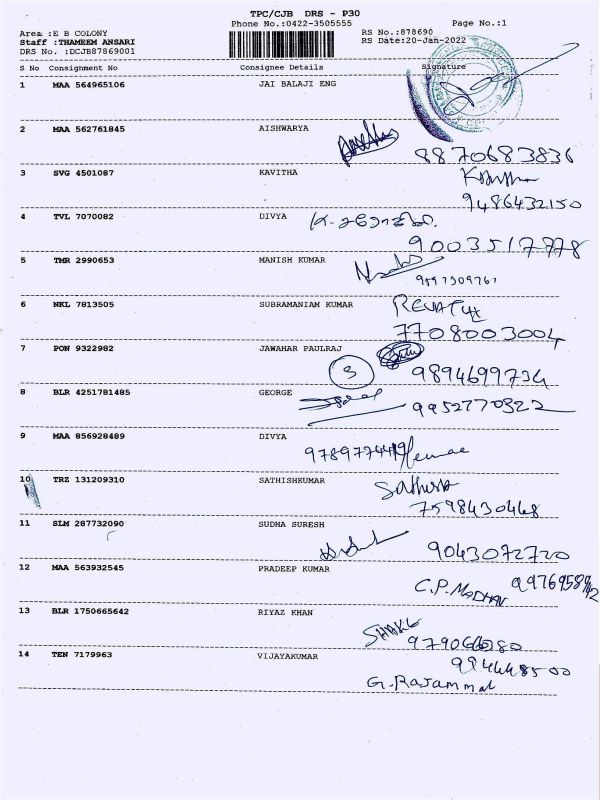 TPC/CJB DRS - P30
Phone No.:0422-3505555
Page No.:1
Area :E B COLONY
RS No.:878690
Staff :THAMEEM ANSARI
RS Date:20-Jan-2022
DRS No. :DCJB87869001
S No Consignment No Consignee Details Signature
1 MAA 564965106 JAI BALAJI ENG
2 MAA 562761845 AISHWARYA
8870683836
3 SVG 4501087 KAVITHA
9486432150
4 TVL 7070082 DIVYA
9003517778
5 TMR 2990653 MANISH KUMAR
6 NKL 7813505 SUBRAMANIAM KUMAR
7708003004
7 PON 9322982 JAWAHAR PAULRAJ
3 9894699734
8 BLR 4251781485 GEORGE
9952770322
9 MAA 856928489 DIVYA
10 TRZ 131209310 SATHISHKUMAR
7598430468
11 SLM 287732090 SUDHA SURESH
9043072720
12 MAA 563932545 PRADEEP KUMAR
C.P. MADHAN
13 BLR 1750665642 RIYAZ KHAN
14 TEN 7179963 VIJAYAKUMAR
G. Rajammal